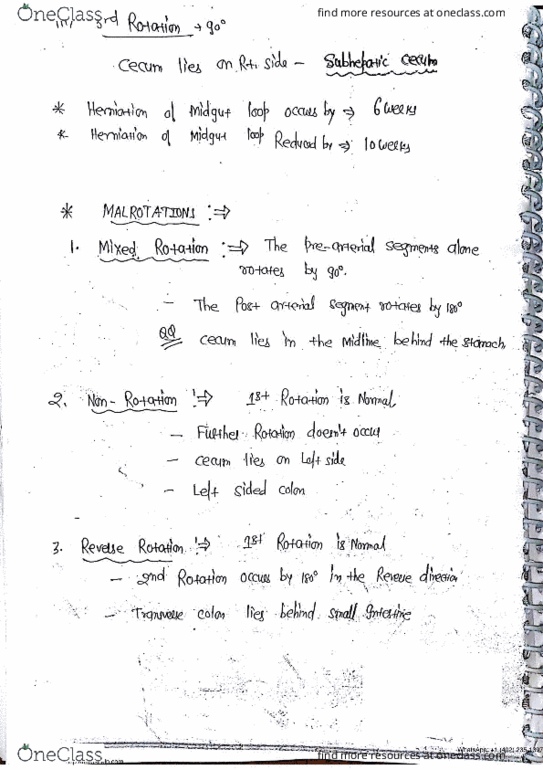 OneClass
find more resources at oneclass.com
3rd Rotation → 90°
cecum lies on Rt. side - Subhepatic cecum
* Herniation of Midgut loop occurs by ⇒ 6 weeks
* Herniation of Midgut loop Reduced by ⇒ 10 weeks
* MALROTATIONS :⇒
1. Mixed Rotation :⇒ The pre-arterial segments alone
rotates by 90°.
- The Post arterial segment rotates by 180°
QQ cecum lies in the Midline behind the stomach
2. Non-Rotation :⇒ 1st Rotation is Normal
- Further Rotation doesn't occur
- cecum lies on Left side
- Left sided colon
3. Reverse Rotation :⇒ 1st Rotation is Normal
- 2nd Rotation occurs by 180° in the Reverse direction
- Transverse colon lies behind small intestine
OneClass
find more resources at oneclass.com